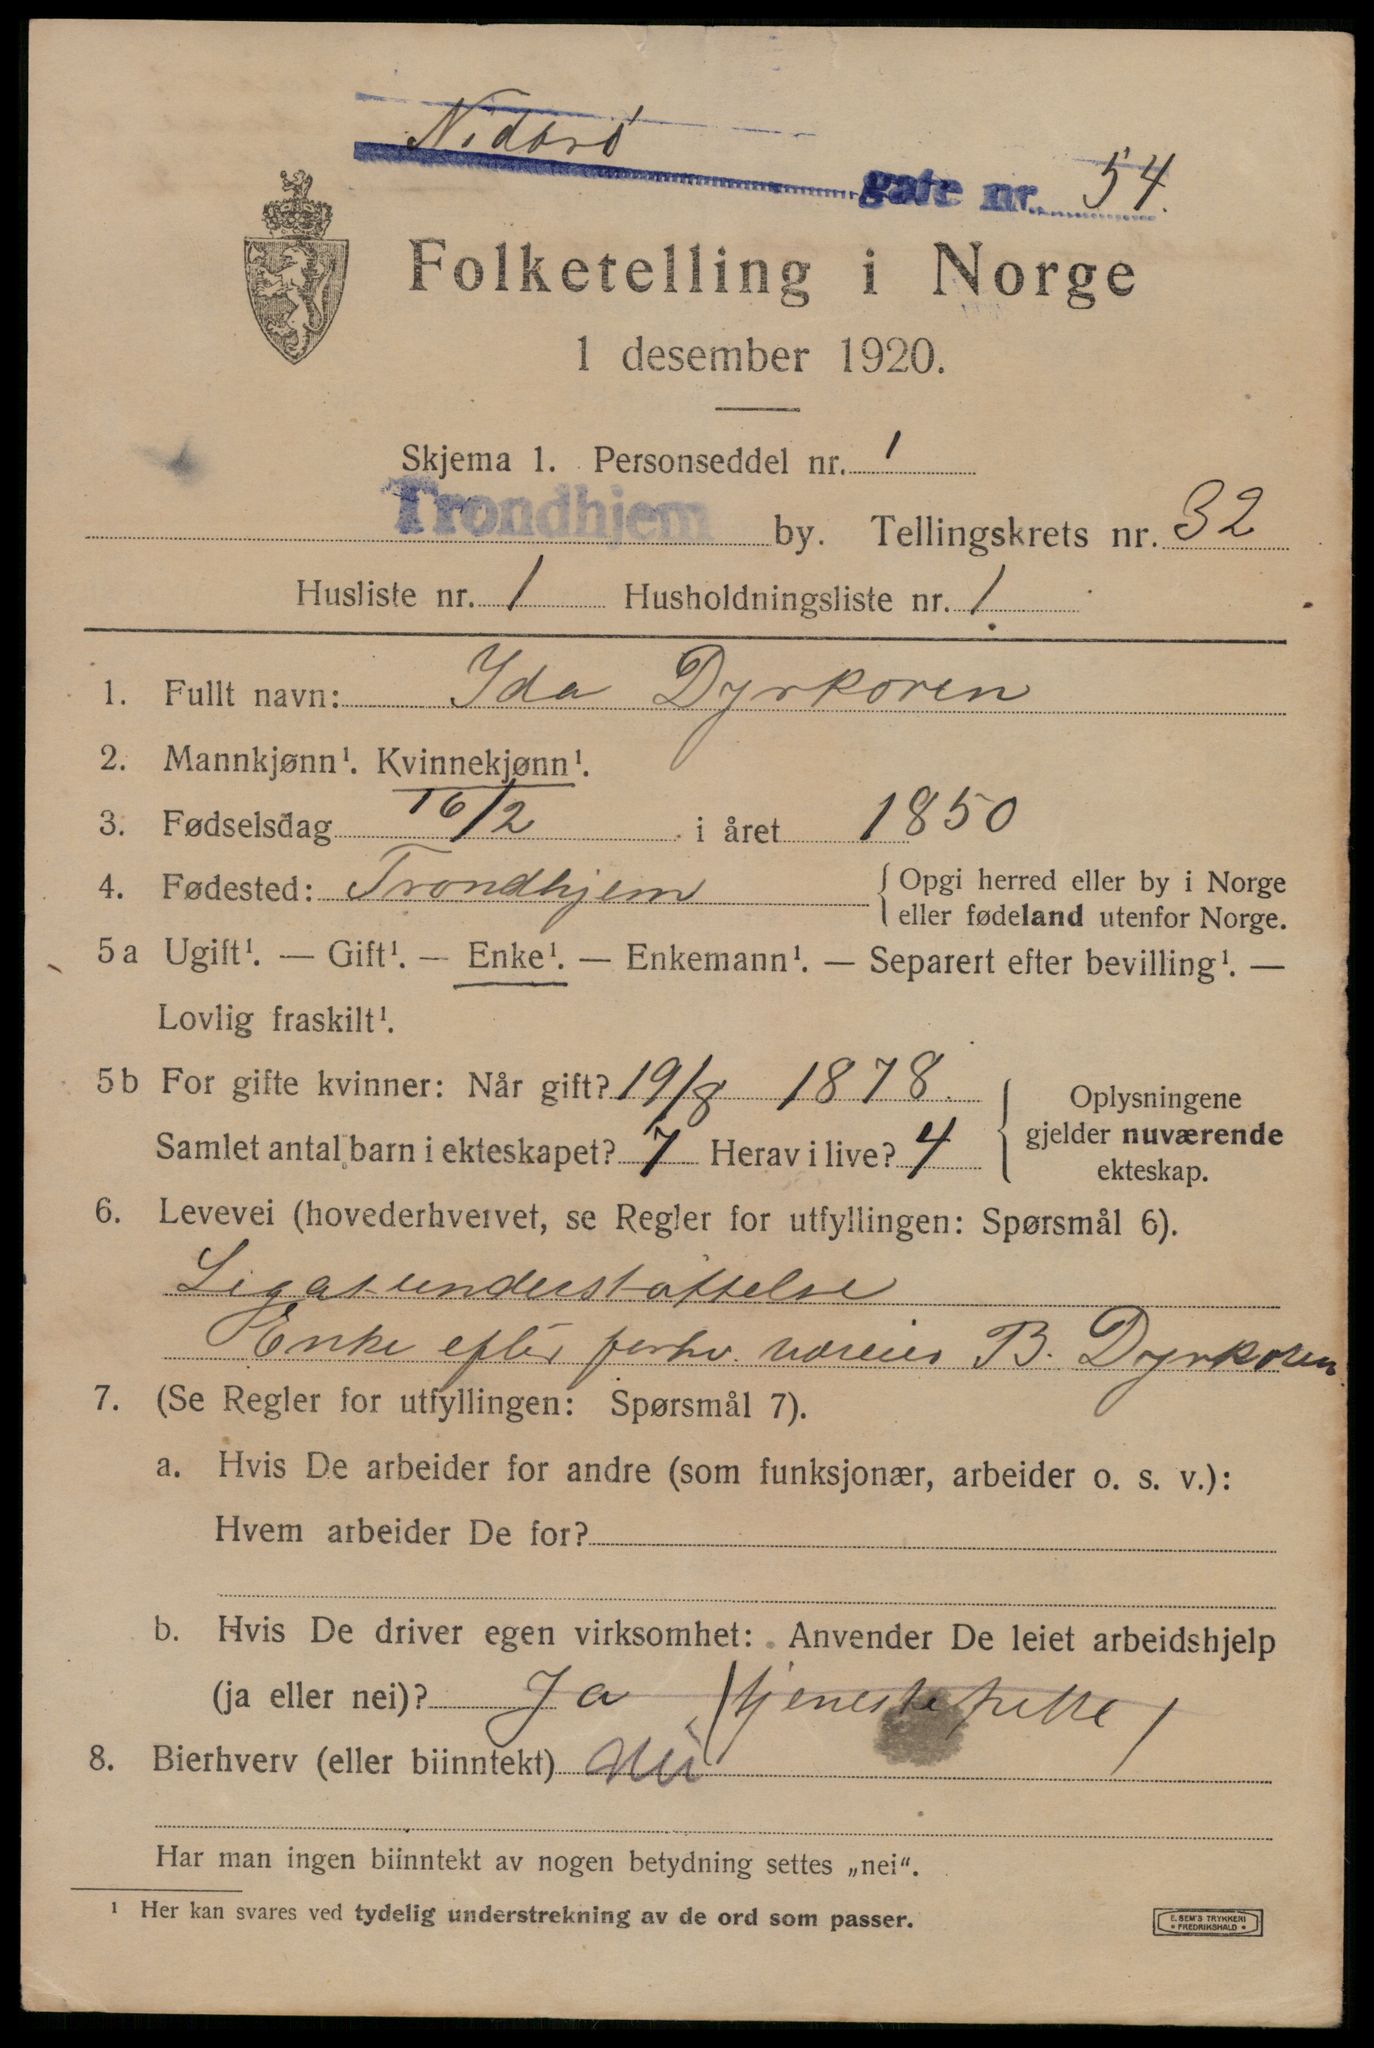 Nidarø
gate nr. 54.
Folketelling i Norge
1 desember 1920.
Skjema 1. Personseddel nr. 1
Trondhjem by. Tellingskrets nr. 32
Husliste nr. 1 Husholdningsliste nr. 1
1. Fullt navn: Ida Dyrkoren
2. Mannkjønn¹. Kvinnekjønn¹.
3. Fødselsdag 16/2 i året 1850
4. Fødested: Trondhjem { Opgi herred eller by i Norge
eller fødeland utenfor Norge.
5a Ugift¹. — Gift¹. — Enke¹. — Enkemann¹. — Separert efter bevilling¹. —
Lovlig fraskilt¹.
5b For gifte kvinner: Når gift? 19/8 1878.
Samlet antal barn i ekteskapet? 7 Herav i live? 4
{ Oplysningene
gjelder nuværende
ekteskap.
6. Levevei (hovederhvervet, se Regler for utfyllingen: Spørsmål 6).
Legatunderstøttelse
Enke efter forhv. B. Dyrkoren
7. (Se Regler for utfyllingen: Spørsmål 7).
a. Hvis De arbeider for andre (som funksjonær, arbeider o. s. v.):
Hvem arbeider De for?
b. Hvis De driver egen virksomhet: Anvender De leiet arbeidshjelp
(ja eller nei)? Ja (tjenestepike)
8. Bierhverv (eller biinntekt) Nei
Har man ingen biinntekt av nogen betydning settes „nei“.
¹ Her kan svares ved tydelig understrekning av de ord som passer.
E. SEM'S TRYKKERI
* FREDRIKSHALD *